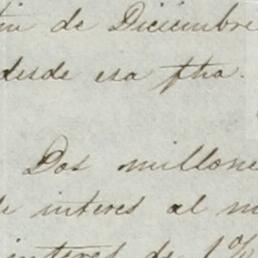 fin de Diciembre
desde esa fha.
Dos millone
de interes al m
interes de 1%